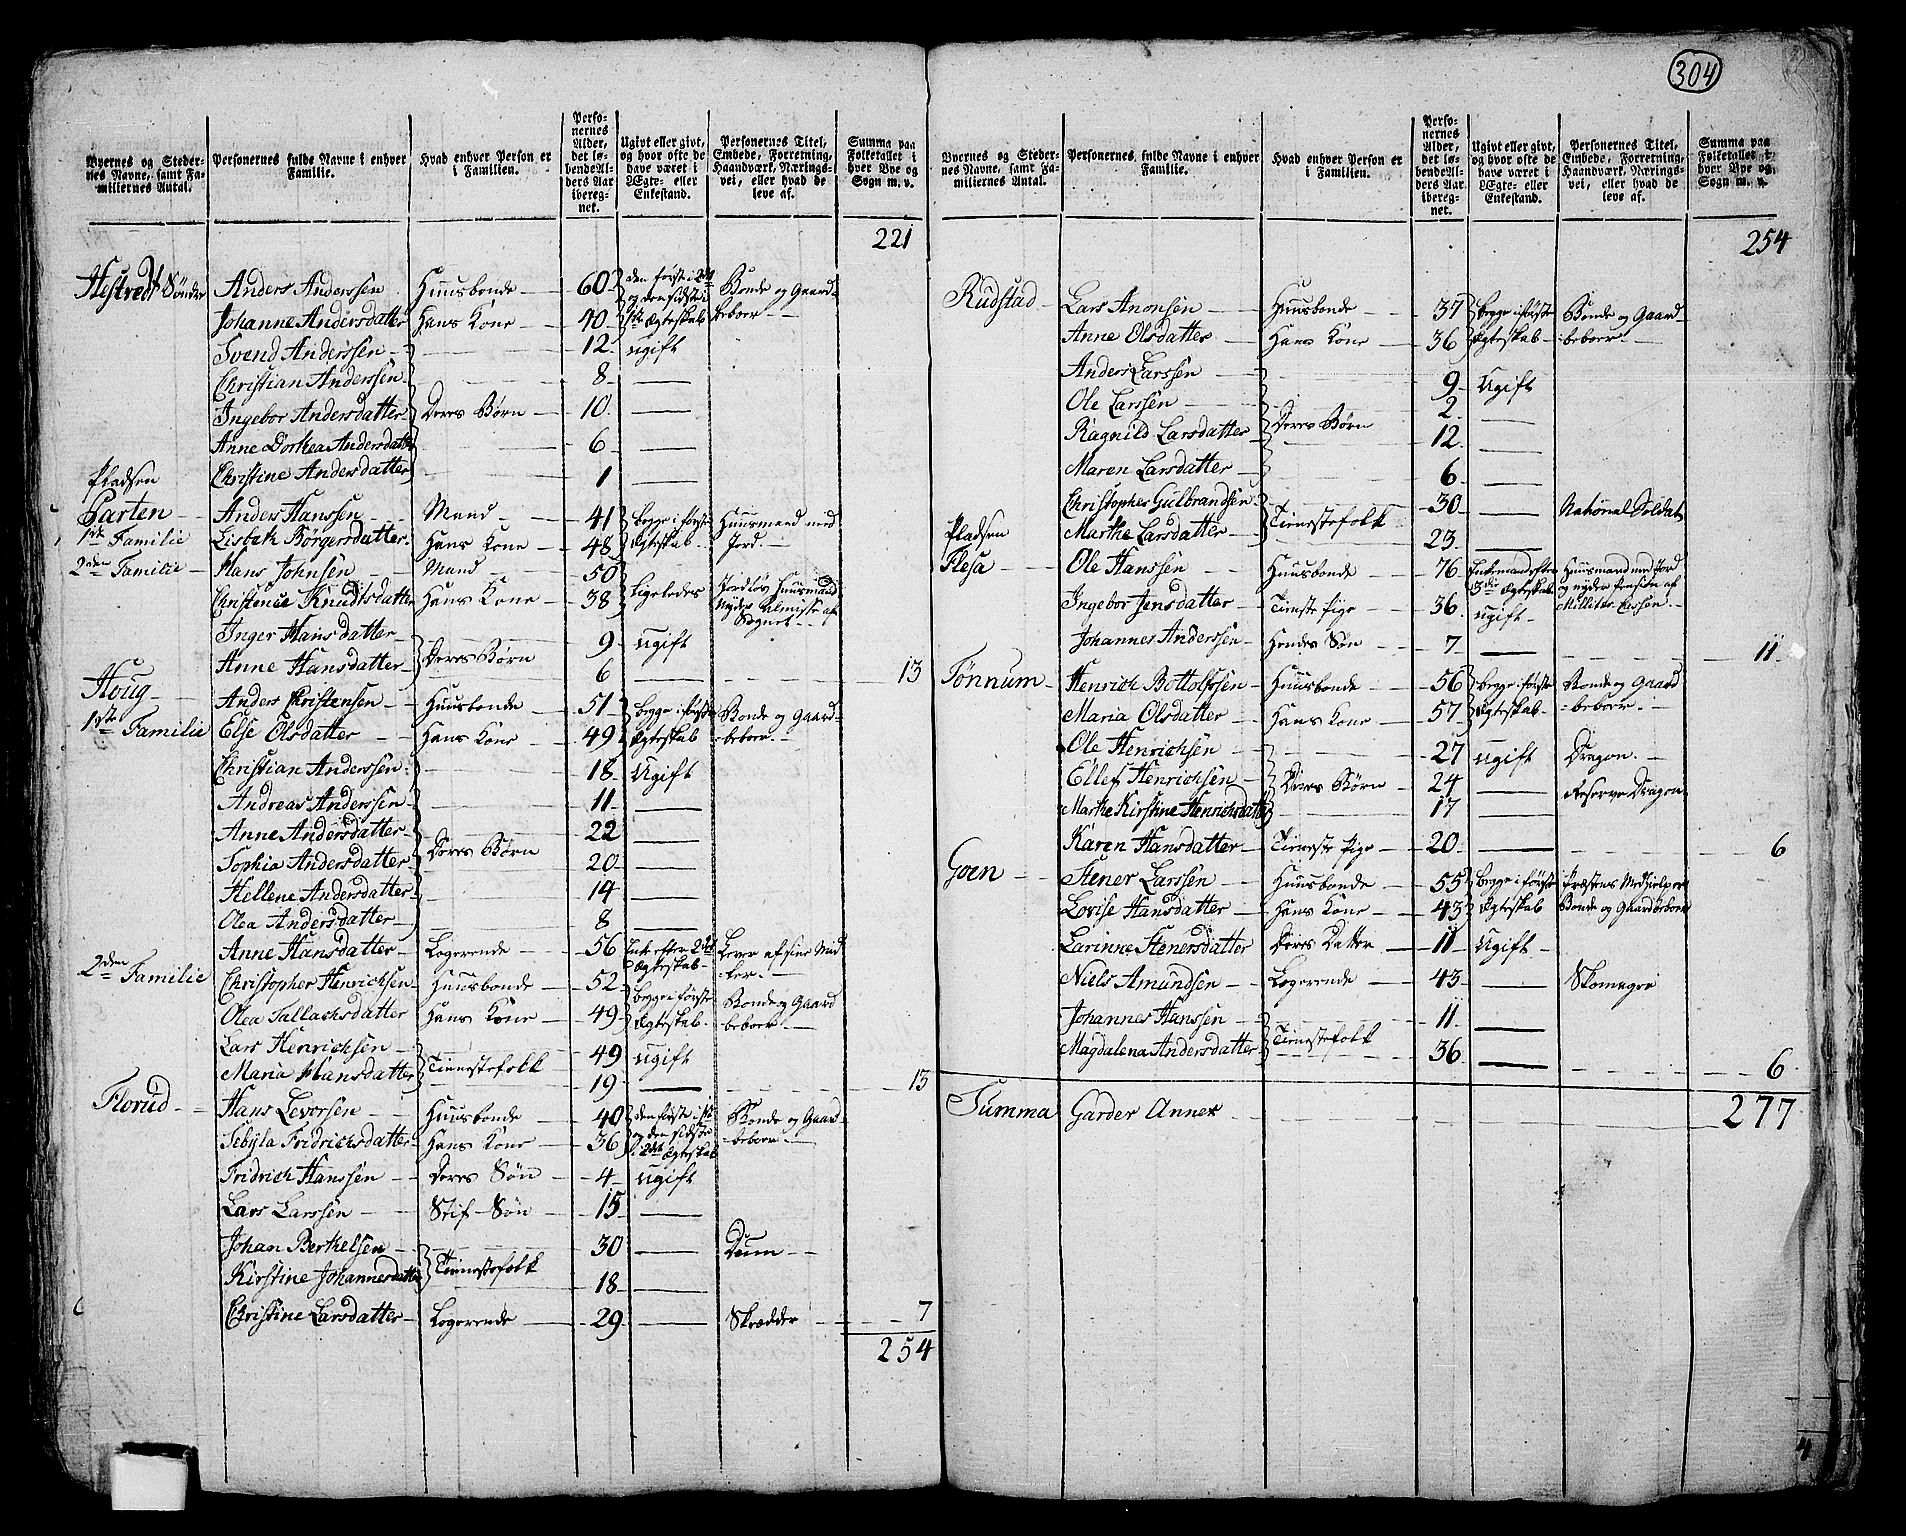 304
Byernes og Stedernes Navne, samt Familiernes Antal.
Personernes fulde Navne i enhver Familie.
Hvad enhver Person er i Familien.
Personernes Alder, det løbende Alders Aar iberegnet.
Ugivt eller givt, og hvor ofte de have været i Ægte- eller Enkestand.
Personernes Titel, Embede, Forretning, Haandværk, Næringsvei, eller hvad de leve af.
Summa paa Folketallet i hver Bye og Sogn m. v.
221
Hestvedt Sønder Anders Anderssen Huusbonde 60 den første i 2det og den sidste i 1ste Ægteskab Bonde og Gaardbeboer
Johanne Andersdatter Hans Kone 40
Svend Anderssen 12 ugift
Christian Anderssen 8
Ingebor Andersdatter Deres Børn 10
Anne Dorthea Andersdatter 6
Christine Andersdatter 1
Pladsen
Parten Anders Hanssen Mand 41 begge i første Ægteskab Huusmand med Jord
1ste Familie Lisbeth Börgersdatter Hans Kone 48
2den Familie Hans Johnsen Mand 50 Ligeledes Jordløs Huusmand Nyder Almisse af Sognet
Christence Knudtsdatter Hans Kone 38
Inger Hansdatter Deres Børn 9 ugift
Anne Hansdatter 6 13
Houg Anders Christensen Huusbonde 51 begge i første Ægteskab Bonde og Gaardbeboer
1ste Familie Else Olsdatter Hans Kone 49
Christian Anderssen 18 Ugift
Andreas Anderssen 11
Anne Andersdatter Deres Børn 22
Sophia Andersdatter 20
Hellene Andersdatter 14
Olea Andersdatter 8
Anne Hansdatter Logerende 56 Enke efter 2det Ægteskab Lever af sine Midler
2den Familie Christopher Henrichsen Huusbonde 52 begge i første Ægteskab Bonde og Gaardbeboer
Olea Tallachsdatter Hans Kone 49
Lars Henrichsen Tienestefolk 49 ugift
Maria Hansdatter 19 13
Florud Hans Levorsen Huusbonde 40 den første i 1ste og den sidste i 2det Ægteskab Bonde og Gaardbeboer
Sebyla Fridrichsdatter Hans Kone 36
Fridrich Hanssen Deres Søn 4 ugift
Lars Larssen Stif-Søn 15
Johan Berthelsen Tienestefolk 30
Kirstine Johannesdatter 18
Christine Larsdatter Logerende 29 Skrædder 7
254
Byernes og Stedernes Navne, samt Familiernes Antal.
Personernes fulde Navne i enhver Familie.
Hvad enhver Person er i Familien.
Personernes Alder, det løbende Alders Aar iberegnet.
Ugivt eller givt, og hvor ofte de have været i Ægte- eller Enkestand.
Personernes Titel, Embede, Forretning, Haandværk, Næringsvei, eller hvad de leve af.
Summa paa Folketallet i hver Bye og Sogn m. v.
254
Rudstad Lars Anonsen Huusbonde 37 begge i første Ægteskab Bonde og Gaardbeboer
Anne Olsdatter Hans Kone 36
Anders Larssen 9 Ugift
Ole Larssen Deres Børn 2
Ragnild Larsdatter 12
Maren Larsdatter 6
Christopher Gulbrandsen Tienestefolk 30 National Soldat
Pladsen Marthe Larsdatter 23
Flesa Ole Hanssen Huusbonde 76 Enkemand efter 3die Ægteskab Huusmand med Jord og nyder Pension af
Ingebor Jensdatter Tieneste Pige 36 ugift
Johannes Anderssen Hendes Søn 7 11
Tønnum Henrich Bottolfssen Huusbonde 56 begge i første Ægteskab Bonde og Gaardbeboer
Maria Olsdatter Hans Kone 57
Ole Henrichsen 27 ugift Dragon
Ellef Henrichsen Deres Børn 24 Reserve Dragon
Marthe Kirstine Henrichsdatter 17
Karen Hansdatter Tieneste Pige 20 6
Goen Stener Larssen Huusbonde 55 begge i første Ægteskab Præstens Medhielper Bonde og Gaardbeboer
Lovise Hansdatter Hans Kone 43
Larinne Stenersdatter Deres Datter 11 Ugift
Niels Amundsen Logerende 43 Skomager
Johannes Hanssen Tienestefolk 11
Magdalena Andersdatter 36 6
Summa Garder Annex 277
4